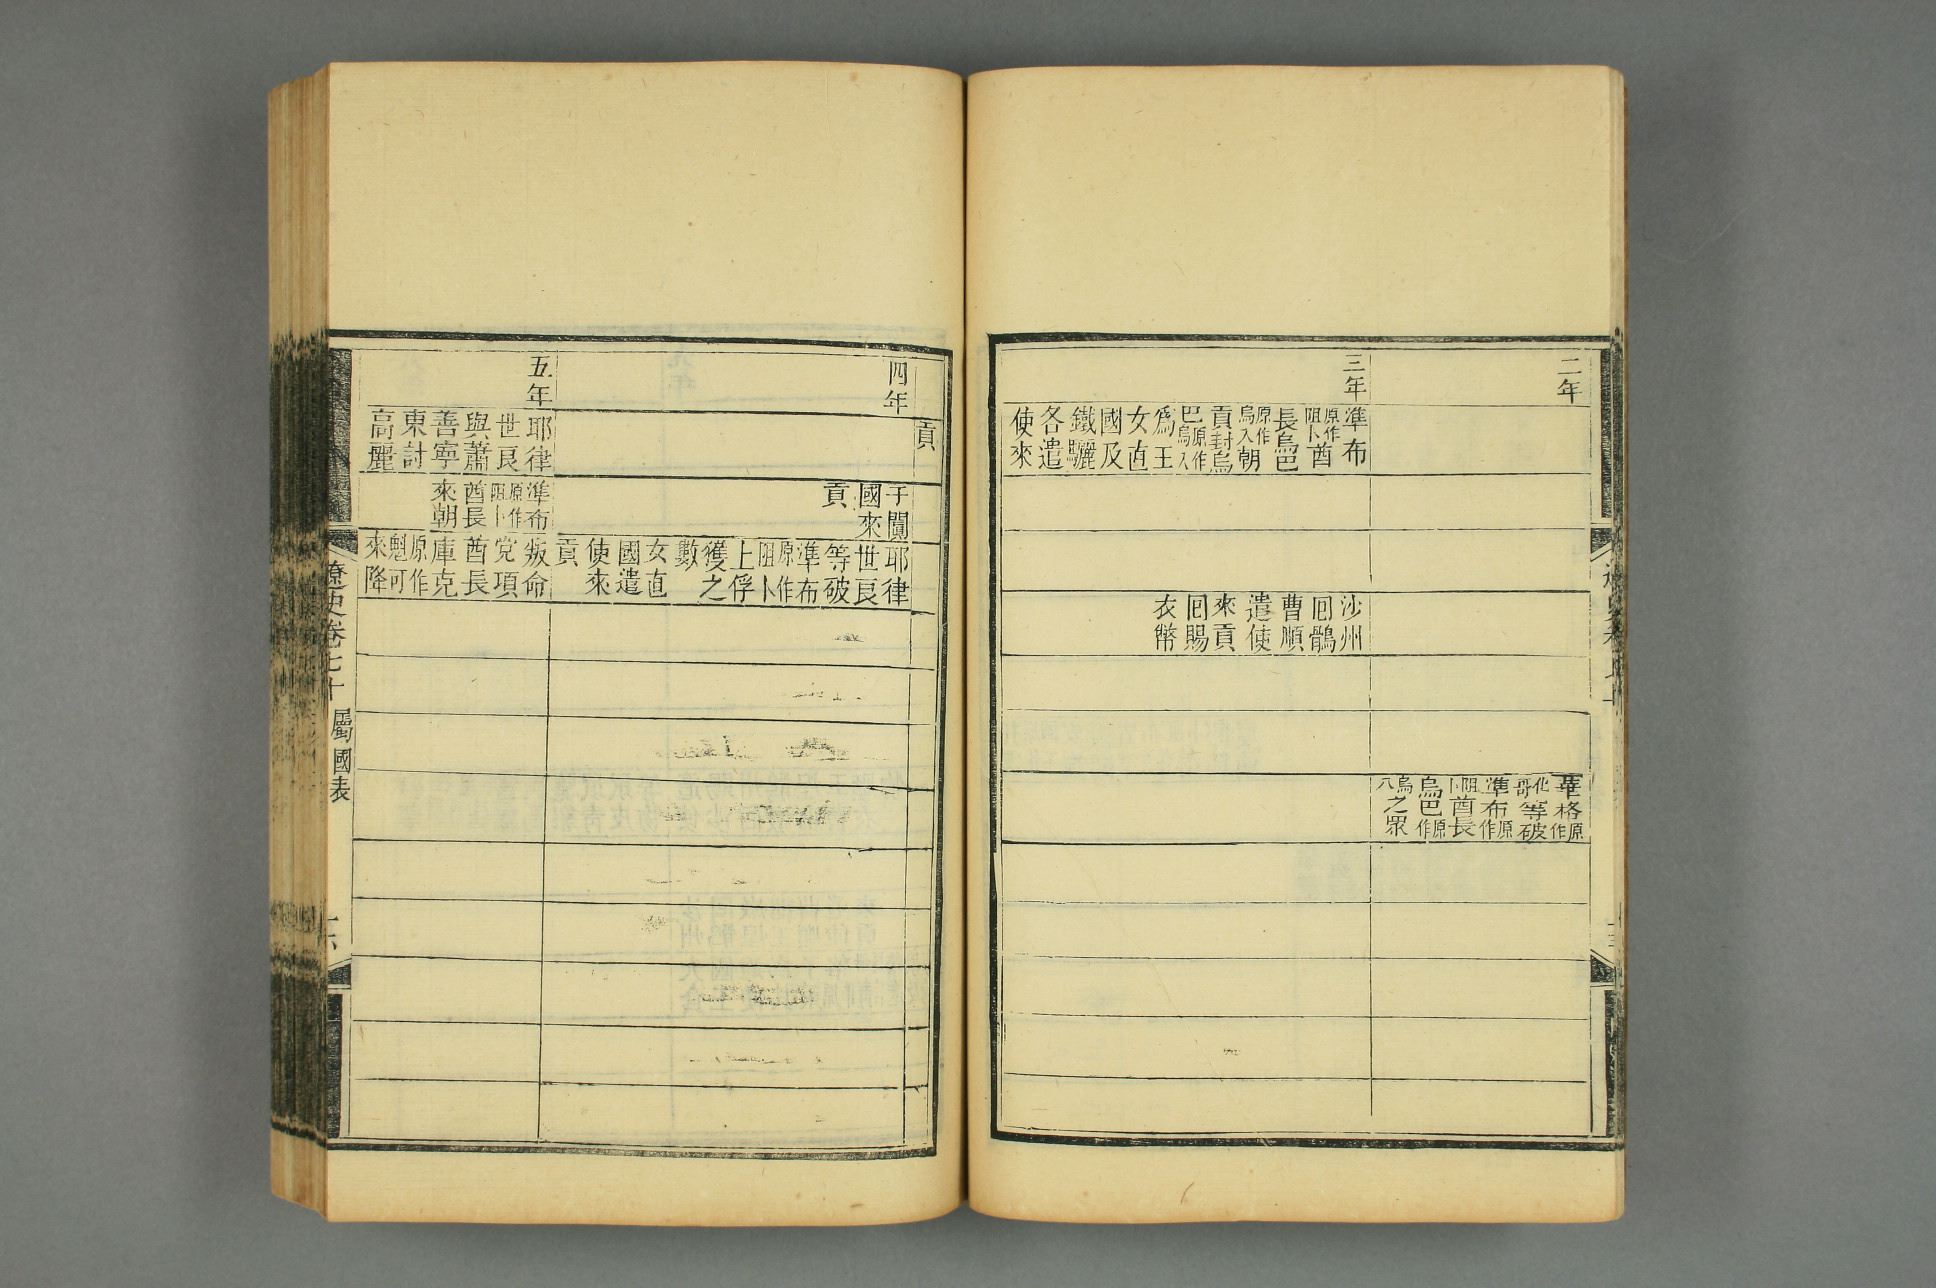 二年
華格原作
化哥等破
準布原作
阻卜酋長
烏巴原作
烏八之眾
三年
準布
原作阻卜酋
長烏巴
原作烏八朝
貢封烏
巴原作烏八
為王
女直
國及
鐵驪
各遣
使來
沙州
囘鶻
曹順
遣使
來貢
囘賜
衣幣
貢
四年
于闐
國來
貢
耶律
世良
等破
準布
原作阻卜
上俘
獲之
數
女直
國遣
使來
貢
五年
耶律
世良
與蕭
善寧
東討
高麗
準布
原作阻卜
酋長
來朝
叛命
党項
酋長
庫克
原作魁可
來降
遼史卷七十
屬國表
十六